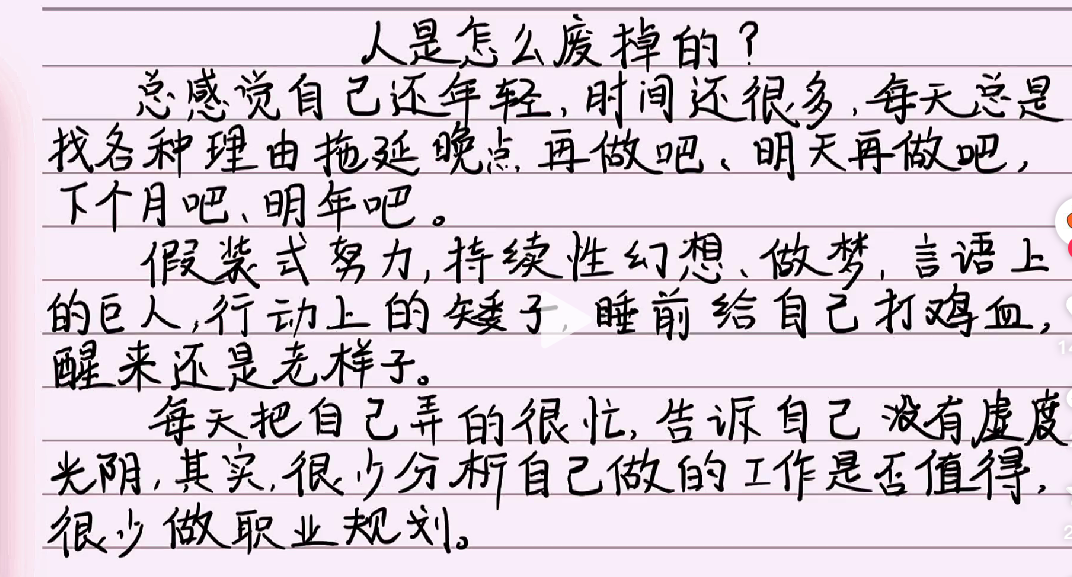 人是怎么废掉的？
总感觉自己还年轻，时间还很多，每天总是
找各种理由拖延晚点再做吧、明天再做吧，
下个月吧、明年吧。
假装式努力，持续性幻想、做梦，言语上
的巨人，行动上的矮子，睡前给自己打鸡血，
醒来还是老样子。
每天把自己弄的很忙，告诉自己没有虚度
光阴，其实，很少分析自己做的工作是否值得，
很少做职业规划。